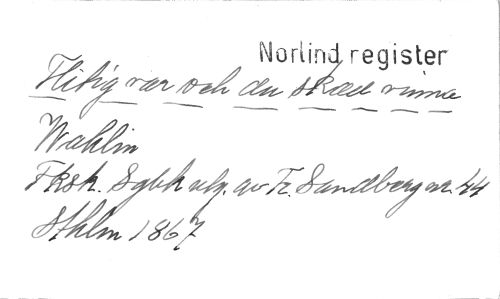 Norlind register
Flitig var och du skall vinna
Wahlin
Fksk. Sgbk utg. av Fr. Sandberg nr. 44
Sthlm 1867